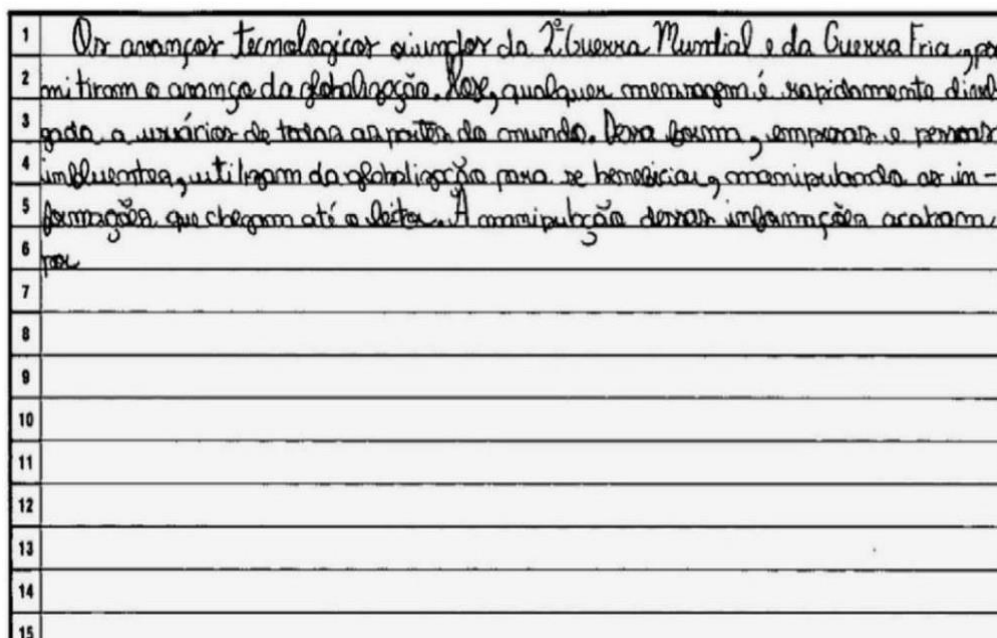 1 Os avanços tecnologicos oriundos da 2ª Guerra Mundial e da Guerra Fria, per
2 mitiram o avanço da globalização. Hoje, qualquer mensagem é rapidamente divul
3 gada a usuários de todas as partes do mundo. Dessa forma, empresas e pessoas
4 influentes, utilizam da globalização para se beneficiar, manipulando as in-
5 formações que chegam até o leitor. A manipulação dessas informações acabam
6 por
7
8
9
10
11
12
13
14
15